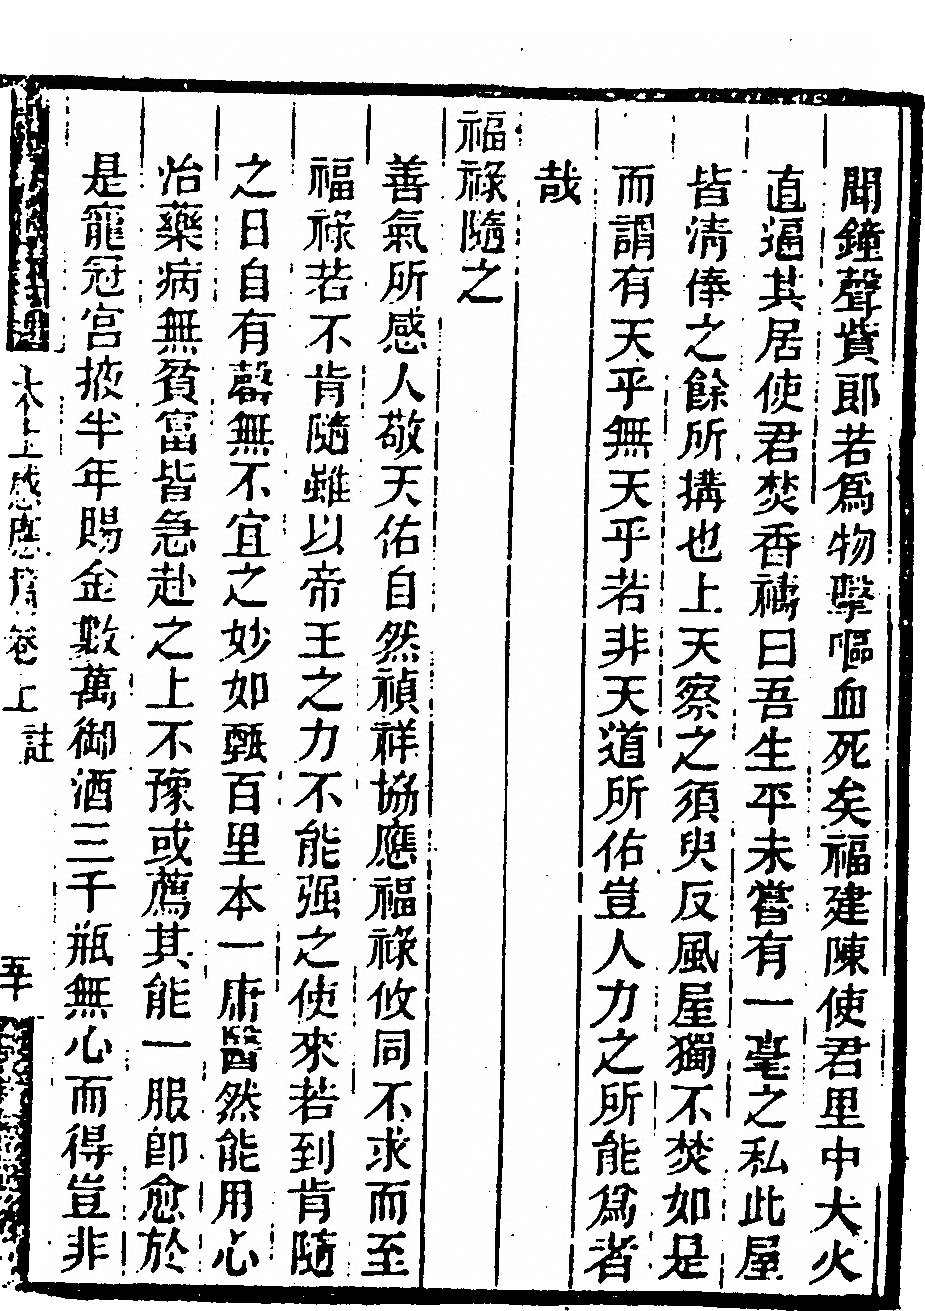 聞鐘聲貲郎若爲物擊嘔血死矣福建陳使君里中大火
直逼其居使君焚香禱曰吾生平未嘗有一毫之私此屋
皆清俸之餘所搆也上天察之須臾反風屋獨不焚如是
而謂有天乎無天乎若非天道所佑豈人力之所能爲者
哉
福祿隨之
善氣所感人敬天佑自然禎祥協應福祿攸同不求而至
福祿若不肯隨雖以帝王之力不能强之使來若到肯隨
之日自有罄無不宜之妙如甄百里本一庸醫然能用心
治藥病無貧富皆急赴之上不豫或薦其能一服即愈於
是寵冠宮掖半年賜金數萬御酒三千瓶無心而得豈非
太上感應篇卷上 註
五十